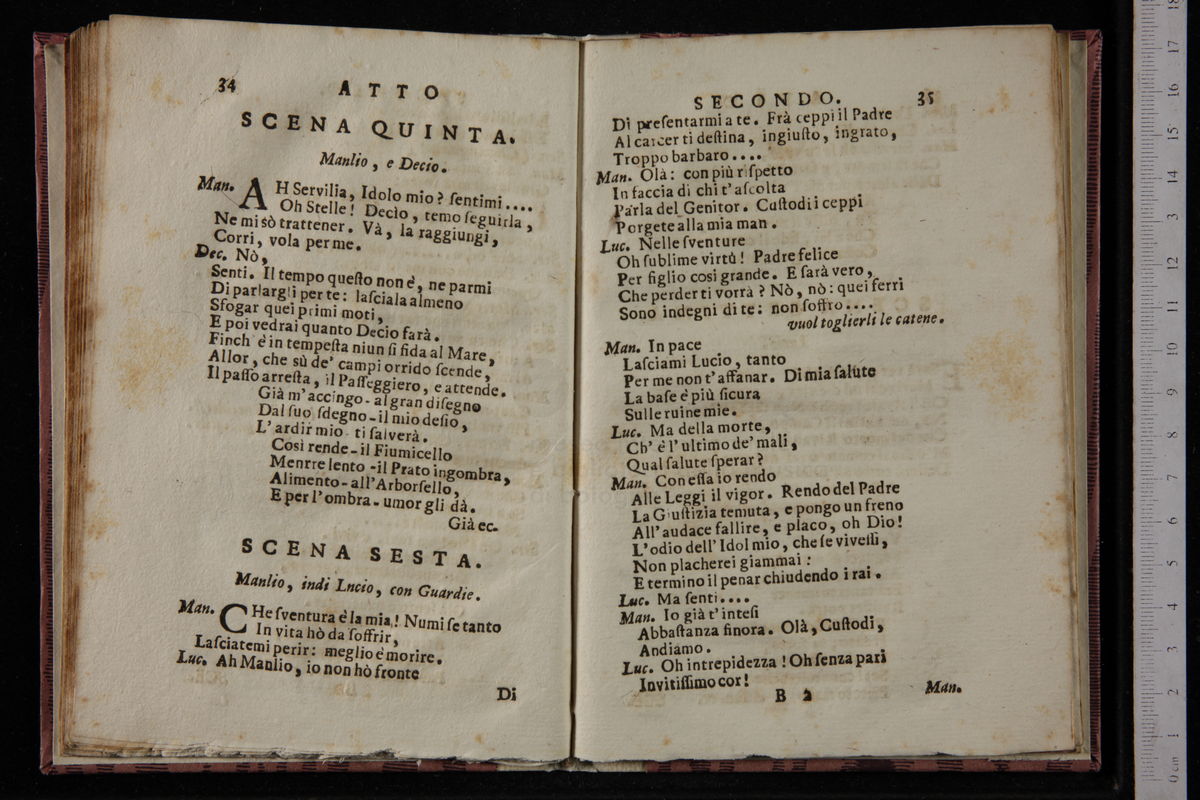 34
ATTO
SCENA QUINTA.
Manlio, e Decio.
Man. AH Servilia, Idolo mio? ſentimi....
Oh Stelle! Decio, temo ſeguirla,
Ne mi sò trattener. Và, la raggiungi,
Corri, vola per me.
Dec. Nò,
Senti. Il tempo queſto non è, ne parmi
Di parlargli per te: laſciala almeno
Sfogar quei primi moti,
E poi vedrai quanto Decio farà.
Finch' è in tempeſta niun ſi fida al Mare,
Allor, che sù de' campi orrido ſcende,
Il paſſo arreſta, il Paſſeggiero, e attende.
Già m'accingo - al gran diſegno
Dal ſuo ſdegno - il mio deſio,
L'ardir mio ti ſalverà.
Così rende - il Fiumicello
Menrre lento - il Prato ingombra,
Alimento - all'Arborſello,
E per l'ombra - umor gli dà.
Già ec.
SCENA SESTA.
Manlio, indi Lncio, con Guardie.
Man. CHe ſventura è la mia! Numi ſe tanto
In vita hò da ſoffrir,
Laſciatemi perir: meglio è morire.
Luc. Ah Manlio, io non hò fronte
Di
SECONDO. 35
Di preſentarmi a te. Frà ceppi il Padre
Al carcer ti deſtina, ingiuſto, ingrato,
Troppo barbaro....
Man. Olà: con più riſpetto
In faccia di chi t'aſcolta
Parla del Genitor. Cuſtodi i ceppi
Porgete alla mia man.
Luc. Nelle ſventure
Oh ſublime virtù! Padre felice
Per figlio così grande. E ſarà vero,
Che perderti vorrà? Nò, nò: quei ferri
Sono indegni di te: non ſoffro....
vuol toglierli le catene.
Man. In pace
Laſciami Lucio, tanto
Per me non t'affanar. Di mia ſalute
La baſe è più ſicura
Sulle ruine mie.
Luc. Ma della morte,
Ch' è l'ultimo de' mali,
Qual ſalute ſperar?
Man. Con eſſa io rendo
Alle Leggi il vigor. Rendo del Padre
La Giuſtizia temuta, e pongo un freno
All'audace fallire, e placo, oh Dio!
L'odio dell'Idol mio, che ſe viveſſi,
Non placherei giammai:
E termino il penar chiudendo i rai.
Luc. Ma ſenti....
Man. Io già t'inteſi
Abbaſtanza finora. Olà, Cuſtodi,
Andiamo.
Luc. Oh intrepidezza! Oh ſenza pari
Invitiſſimo cor!
B 2 Man.
0 cm 1 2 3 4 5 6 7 8 9 10 11 12 13 14 15 16 17 18